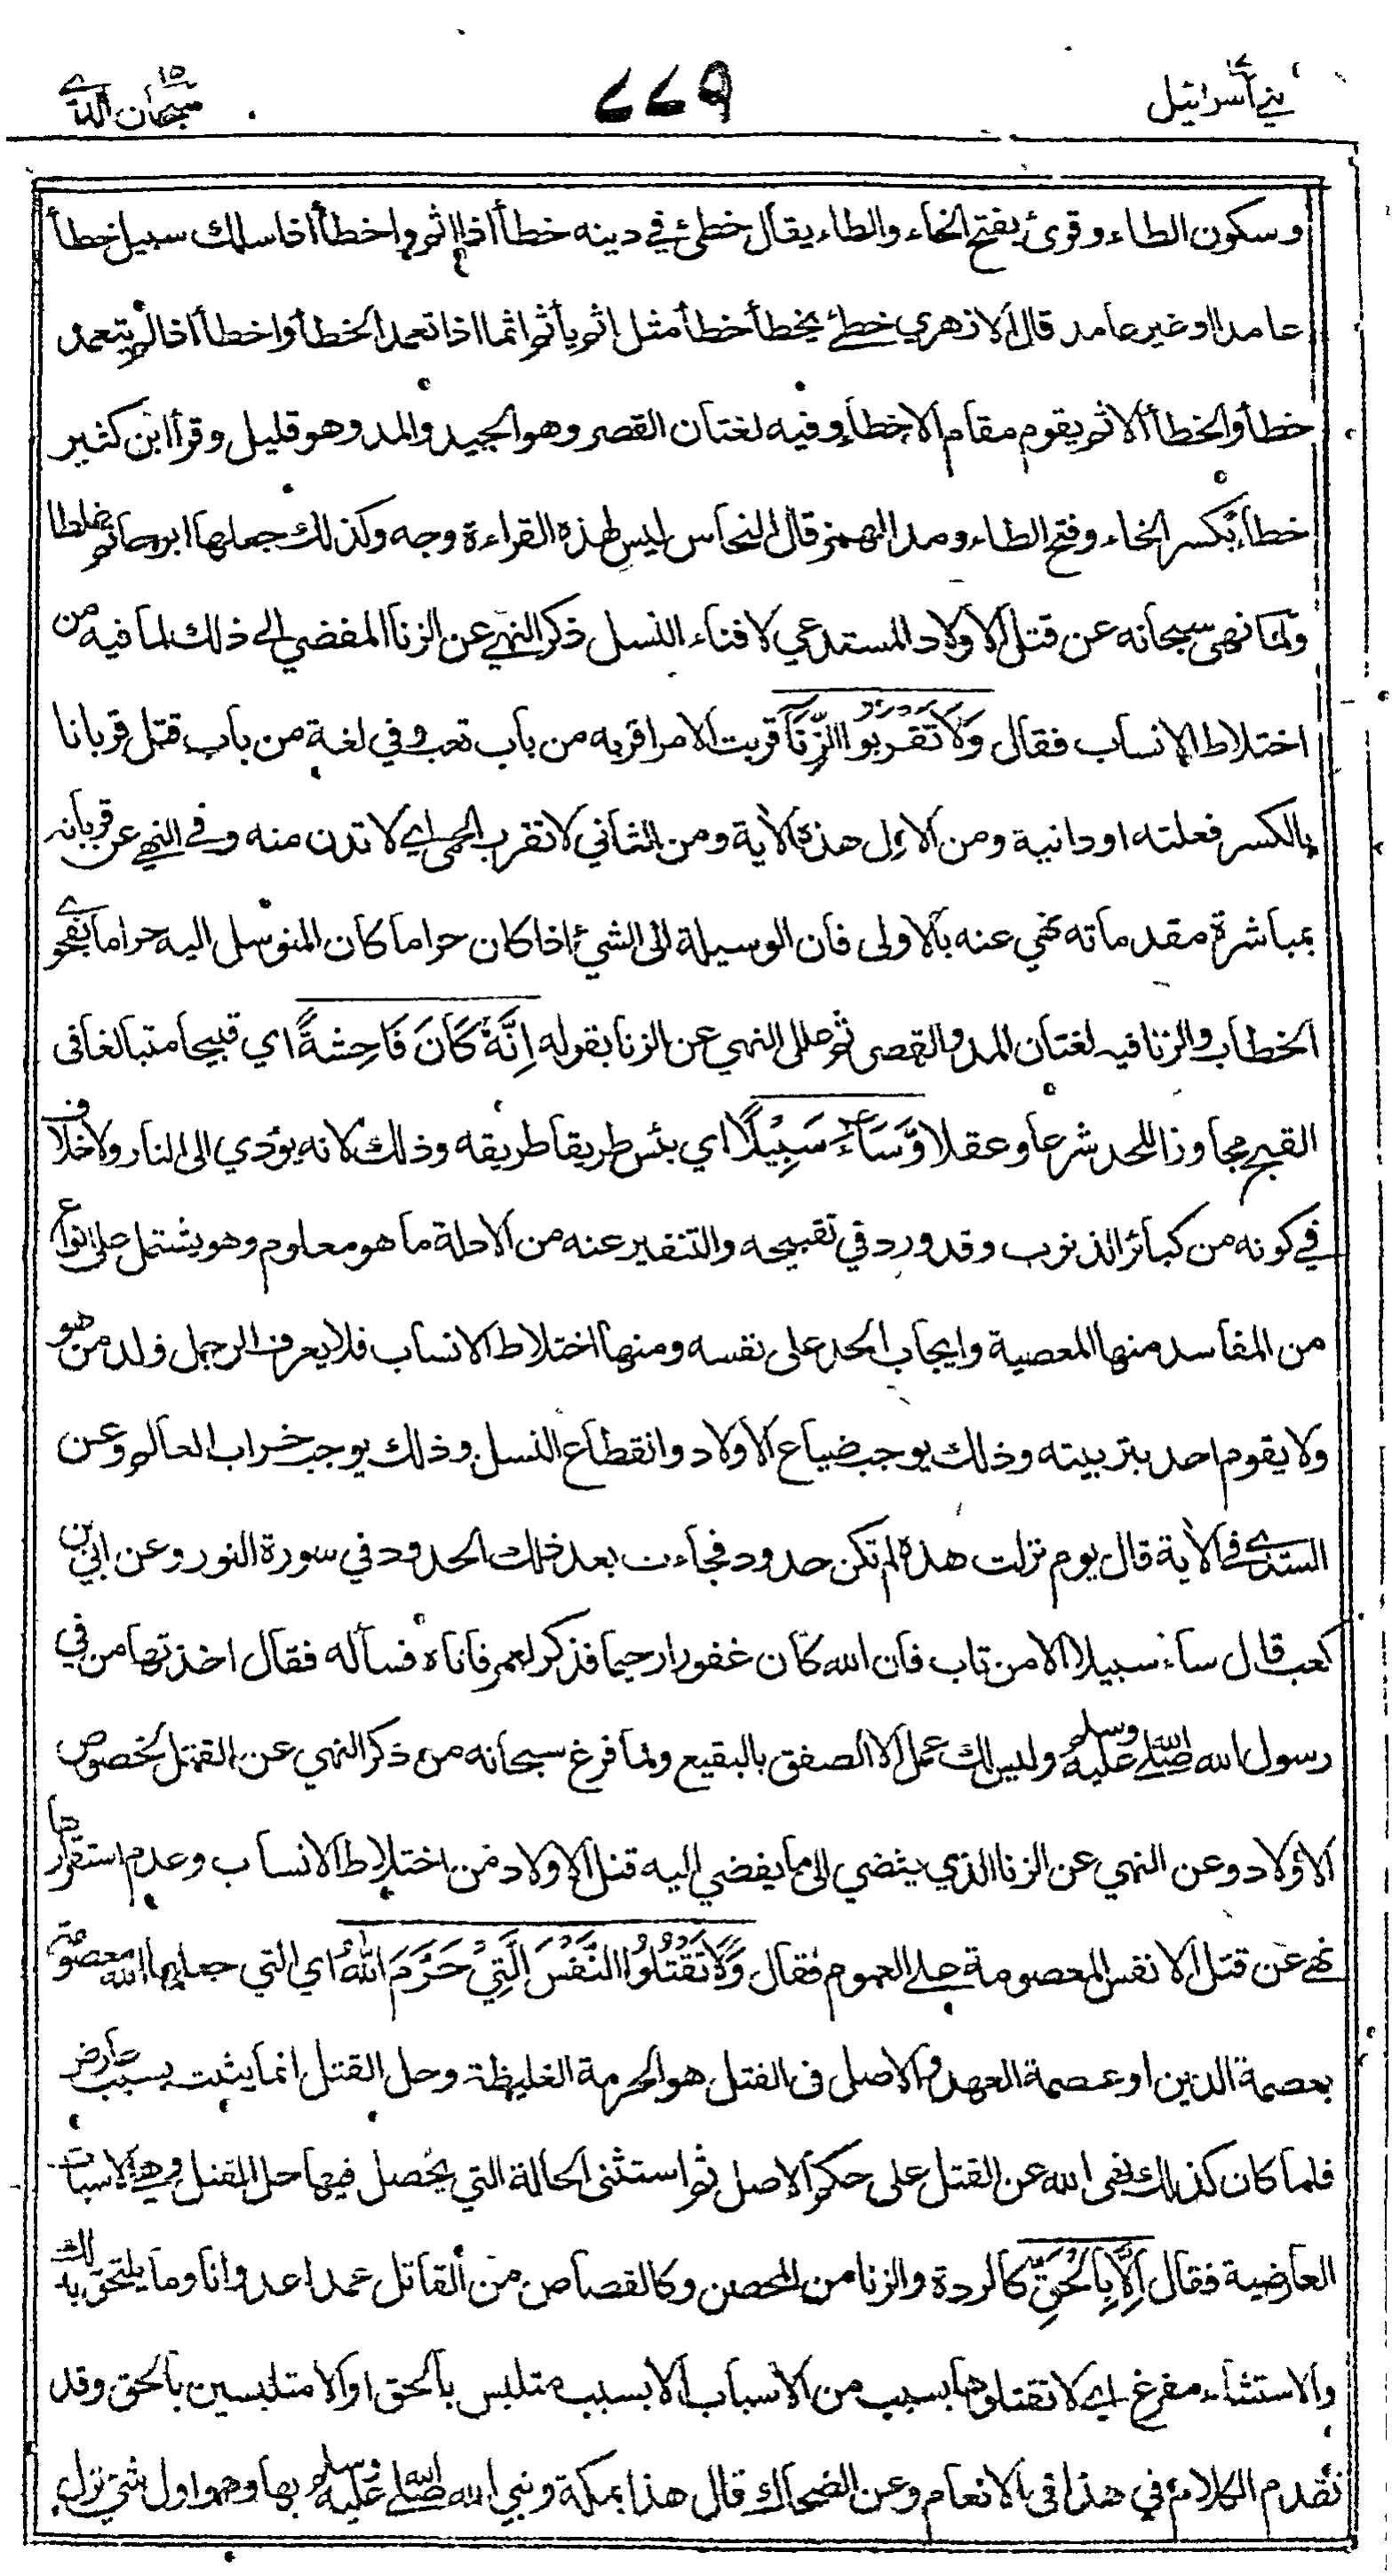 بني أسرائيل ١٧
٧٧٩
سبحان الذي ١٥
وسكون الطاء وقرئ بفتح الخاء والطاء يقال خطئ في دينه خطأ اذا اثم واخطأ اذا سلك سبيل خطأ
عامدا او غير عامد قال الازهري خطئ يخطأ خطأ مثل اثم يأثم اثما اذا تعمد الخطأ واخطأ اذا لم يتعمد
خطأ والخطأ الاثم يقوم مقام الاخطاء وفيه لغتان القصر وهو الجيد والمد وهو قليل وقرأ ابن كثير
خطاء بكسر الخاء وفتح الطاء ومد الهمز قال النحاس ليس لهذه القراءة وجه وكذلك جعلها ابو حاتم غلطا
ولما نهى سبحانه عن قتل الاولاد المستدعي لافناء النسل ذكر النهي عن الزنا المفضي الى ذلك لما فيه من
اختلاط الانساب فقال وَلَا تَقْرَبُوا الزِّنَا قربت الامر اقربه من باب تعب وفي لغة من باب قتل قربانا
بالكسر فعلته او دانية ومن الاول هذه الأية ومن الثاني لا تقرب الحمى اي لا تدن منه وفي النهي عن قربانه
بمباشرة مقدماته نهي عنه بالاولى فان الوسيلة الى الشيئ اذا كان حراما كان المتوسل اليه حراما بفحوى
الخطاب والزنا فيه لغتان المد والقصر ثم علل النهي عن الزنا بقوله اِنَّهٗ كَانَ فَاحِشَةً اي قبيحا متبالغا في
القبح مجاوزا للحد شرعا وعقلا وَّسَاۤءَ سَبِيْلًا اي بئس طريقا طريقه وذلك لانه يؤدي الى النار ولا خلاف
في كونه من كبائر الذنوب وقد ورد في تقبيحه والتنفير عنه من الادلة ما هو معلوم وهو يشتمل على انواع
من المفاسد منها المعصية وايجاب الحد على نفسه ومنها اختلاط الانساب فلا يعرف الرجل ولد من هو
ولا يقوم احد بتربيته وذلك يوجب ضياع الاولاد وانقطاع النسل وذلك يوجب خراب العالم وعن
السدي في الأية قال يوم نزلت هذه لم تكن حدود فجاءت بعد ذلك الحدود في سورة النور وعن ابي بن
كعب قال ساء سبيلا الا من تاب فان الله كان غفورا رحيما فذكر لعمر فاتاه فسأله فقال اخذتها من في
رسول الله صلى الله عليه وسلم وليس لك عمل الا الصفق بالبقيع ولما فرغ سبحانه من ذكر النهي عن القتل لخصوص
الاولاد وعن النهي عن الزنا الذي يفضي الى ما يفضي اليه قتل الاولاد من اختلاط الانساب وعدم استقرارها
نهى عن قتل الانفس المعصومة على العموم فقال وَلَا تَقْتُلُوا النَّفْسَ الَّتِيْ حَرَّمَ اللّٰهُ اي التي جعلها الله معصومة
بعصمة الدين او عصمة العهد والاصل في القتل هو الحرمة الغليظة وحل القتل انما يثبت بسبب عارض
فلما كان كذلك نهى الله عن القتل على حكم الاصل ثم استثنى الحالة التي يحصل فيها حل القتل وهي الاسباب
العارضية فقال اِلَّا بِالْحَقِّ كالردة والزنا من المحصن وكالقصاص من القاتل عمدا عدوانا وما يلتحق بذلك
والاستثناء مفرغ اي لا تقتلوها بسبب من الاسباب الا بسبب متلبس بالحق او الا متلبسين بالحق وقد
تقدم الكلام في هذا في الانعام وعن الضحاك قال هذا بمكة ونبي الله صلى الله عليه وسلم بها وهو اول شيئ نزل